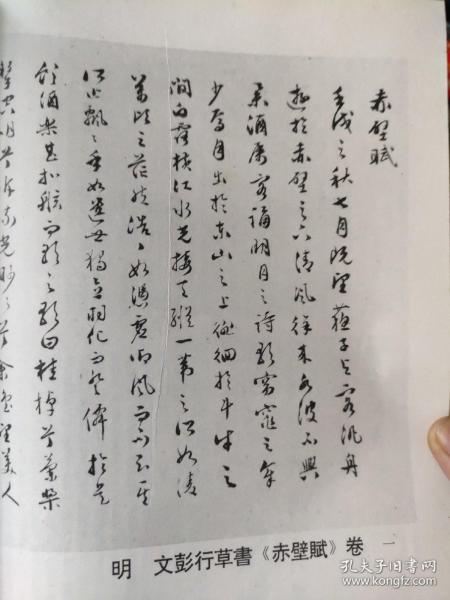 赤壁賦
壬戌之秋七月既望蘇子與客汎舟
遊於赤壁之下清風徐來水波不興
舉酒屬客誦明月之詩歌窈窕之章
少焉月出於東山之上徘徊於斗牛之
間白露橫江水光接天縱一葦之所如凌
萬頃之茫然浩浩如馮虛御風而不知其
所止飄飄乎如遺世獨立羽化而登僊於是
飲酒樂甚扣舷而歌之歌曰桂棹兮蘭槳
擊空明兮泝流光渺渺兮余懷望美人
明 文彭行草書《赤壁賦》卷 一
孔夫子旧书网